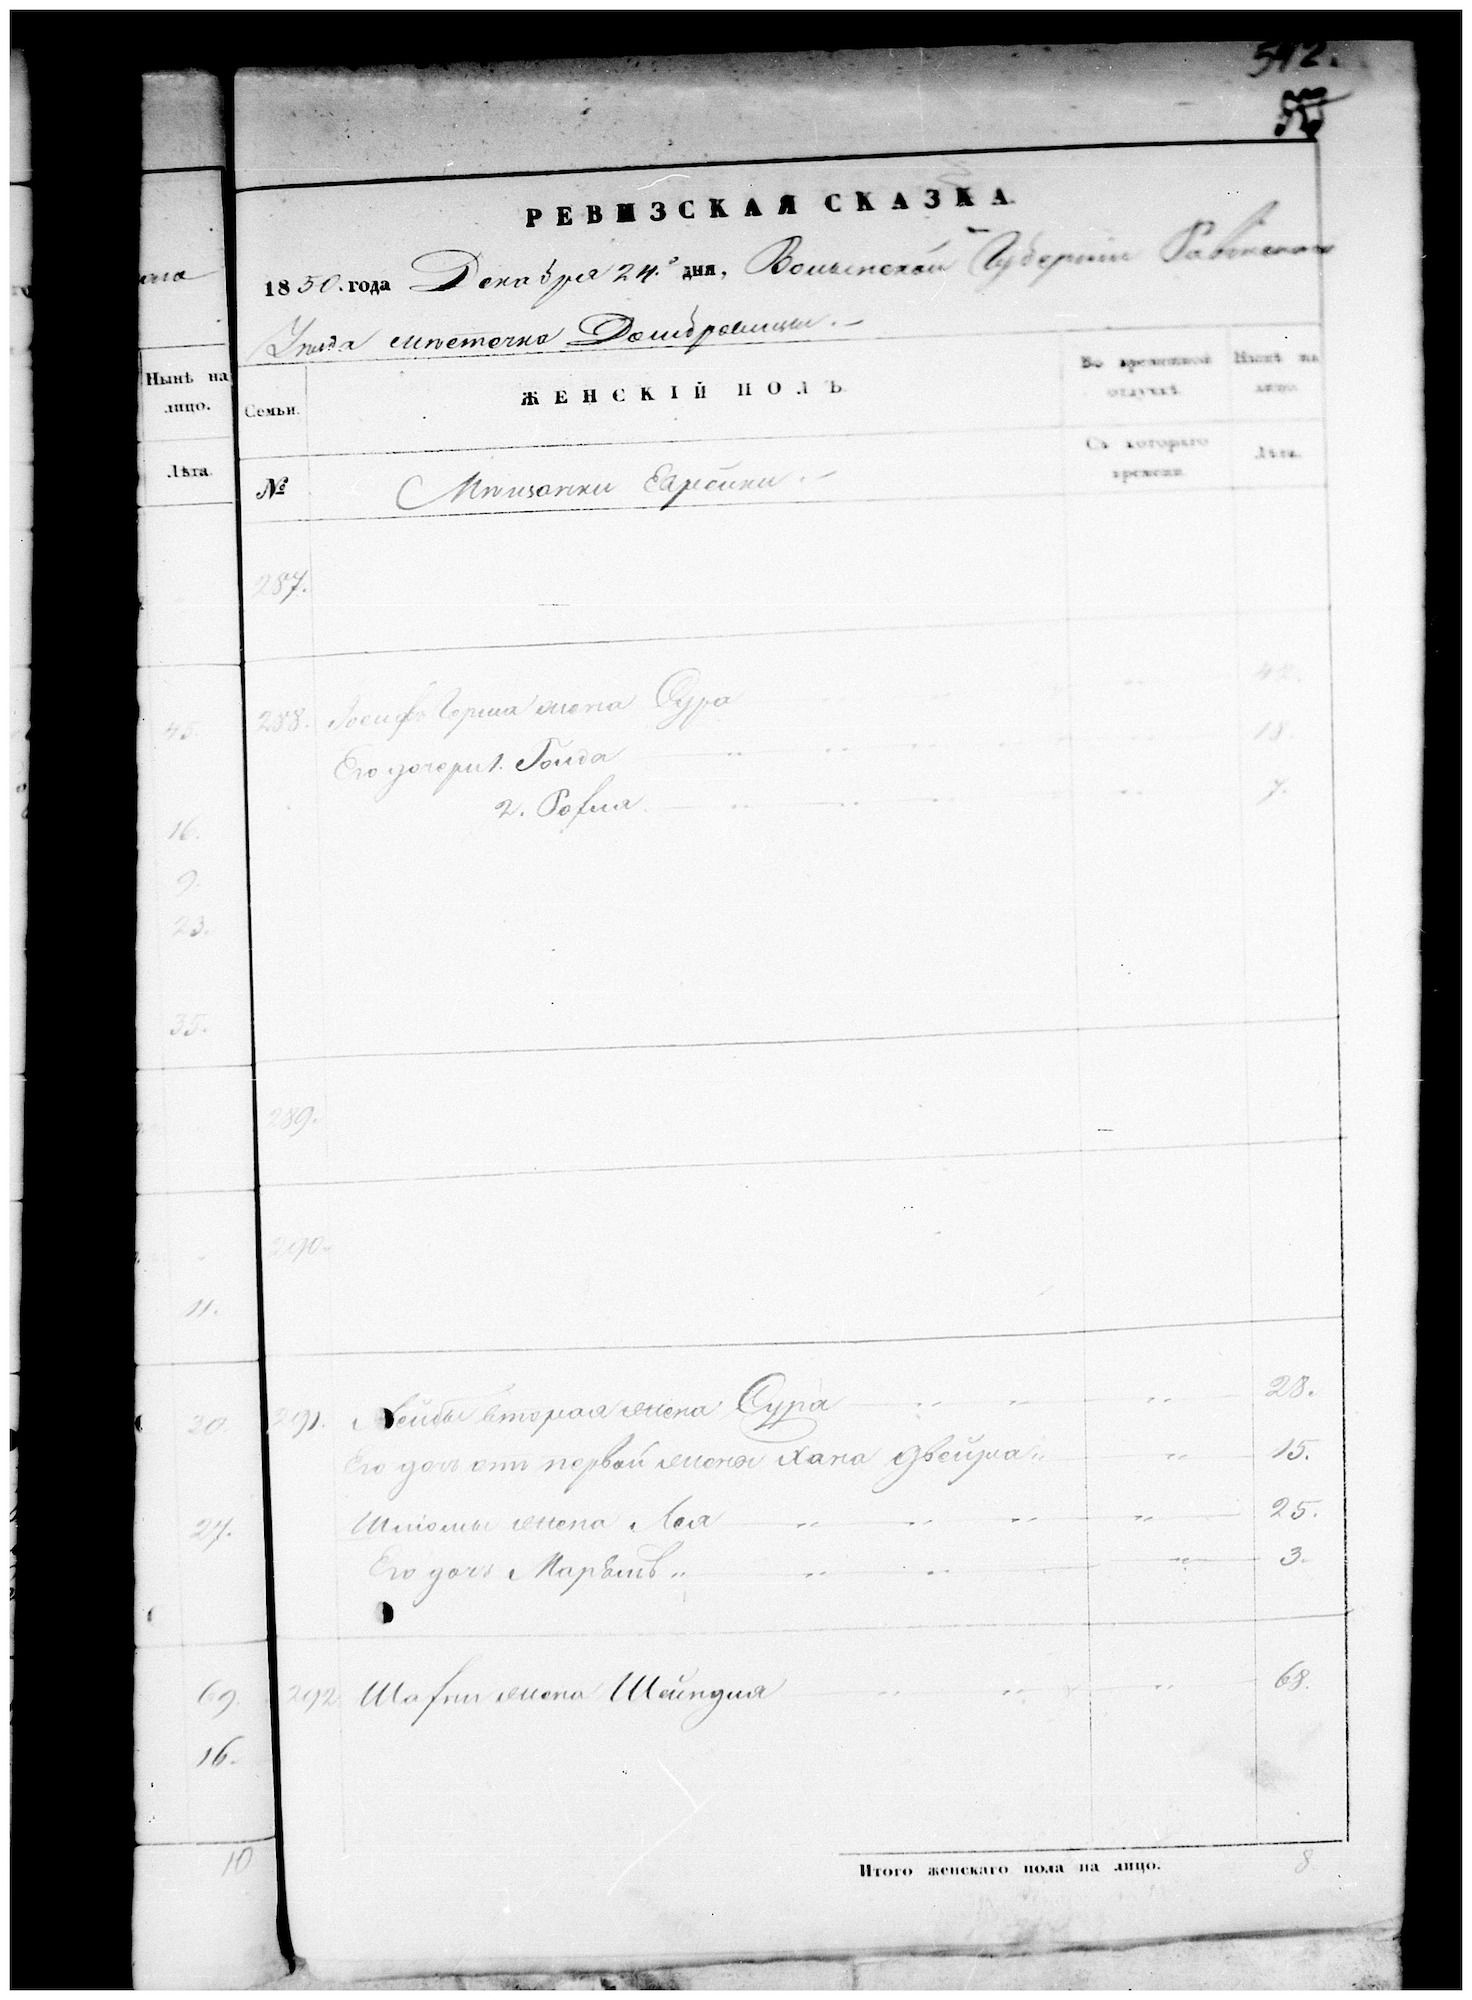 512.
РЕВИЗСКАЯ СКАЗКА
1850. года Декабря 24.го дня, Волынской Губернии Ровенского
Уезда местечка Домбровицы.
Нынѣ на лицо.
Лѣта.
Семьи.
ЖЕНСКІЙ ПОЛЪ
Во временной отлучкѣ.
Нынѣ на лицо.
№
Мѣщанки Еврейки.
Съ котораго времени.
Лѣта.
287.
45. 288. Иосифа Герша жена Сура 42.
Его дочери 1. Голда 18.
2. Рохля 7.
16.
9.
23.
35.
289.
290.
11.
20. 291. Лейбы вторая жена Сура 28.
Его дочь отъ первой жены Хана Двейра 15.
27. Шліомы жена Лея 25.
Его дочь Марьямъ 3.
69. 292 жена Шейндля 68.
16.
10
Итого женскаго пола на лицо. 8